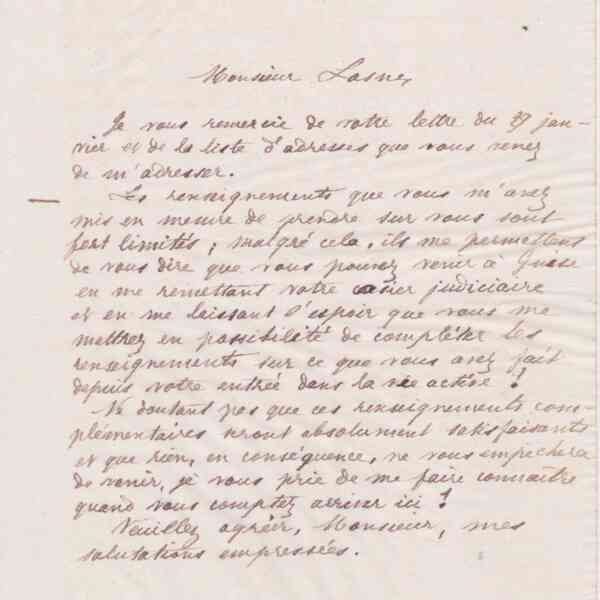 Monsieur Lasne,
Je vous remercie de votre lettre du 27 jan-
vier et de la liste d'adresses que vous venez
de m'adresser.
Les renseignements que vous m'avez
mis en mesure de prendre sur vous sont
fort limités ; malgré cela, ils me permettent
de vous dire que vous pouvez venir à Guise
en me remettant votre casier judiciaire
et en me laissant l'espoir que vous me
mettrez en possibilité de compléter les
renseignements sur ce que vous avez fait
depuis votre entrée dans la vie active !
Ne doutant pas que ces renseignements com-
plémentaires seront absolument satisfaisants
et que rien, en conséquence, ne vous empêchera
de venir, je vous prie de me faire connaître
quand vous comptez arriver ici !
Veuillez agréer, Monsieur, mes
salutations empressées.